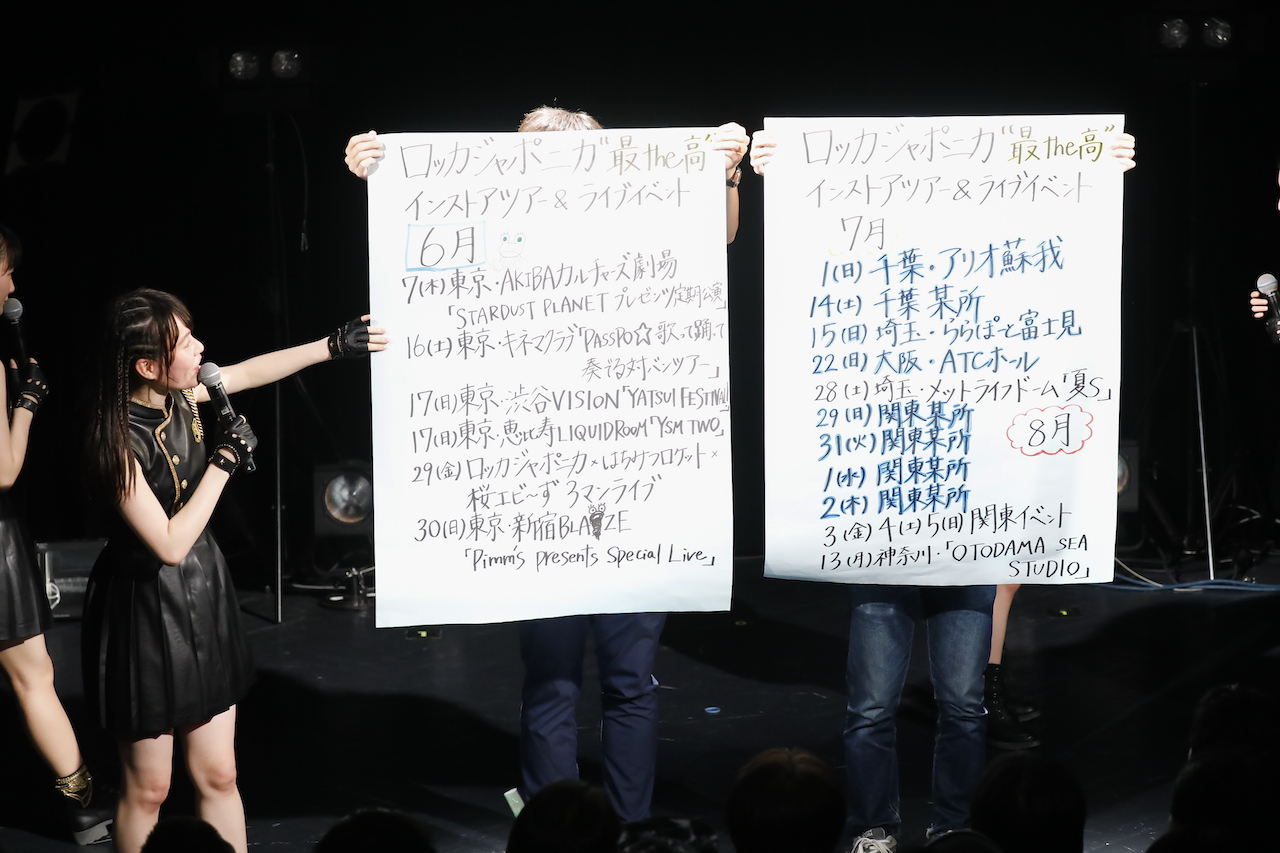 ロッカジャポニカ"最the高"
インストアツアー&ライブイベント
6月
7(木)東京・AKIBAカルチャーズ劇場
「STARDUST PLANET プレゼンツ定期公演」
16(土)東京・キネマクラブ「PASSPO☆歌って踊って
奏でる対バンツアー」
17(日)東京・渋谷VISION「YATSUI FESTIVAL」
17(日)東京・恵比寿LIQUIDROOM「YSM TWO」
29(金)ロッカジャポニカ×はちみつロケット×
桜エビ〜ず 3マンライブ
30(日)東京・新宿BLAZE
「Pimm's presents Special Live」
ロッカジャポニカ"最the高"
インストアツアー&ライブイベント
7月
1(日)千葉・アリオ蘇我
14(土)千葉某所
15(日)埼玉・ららぽーと富士見
22(日)大阪・ATCホール
28(土)埼玉・メットライフドーム「夏S」
29(日)関東某所
31(火)関東某所
8月
1(水)関東某所
2(木)関東某所
3(金)4(土)5(日)関東イベント
13(月)神奈川・「OTODAMA SEA
STUDIO」